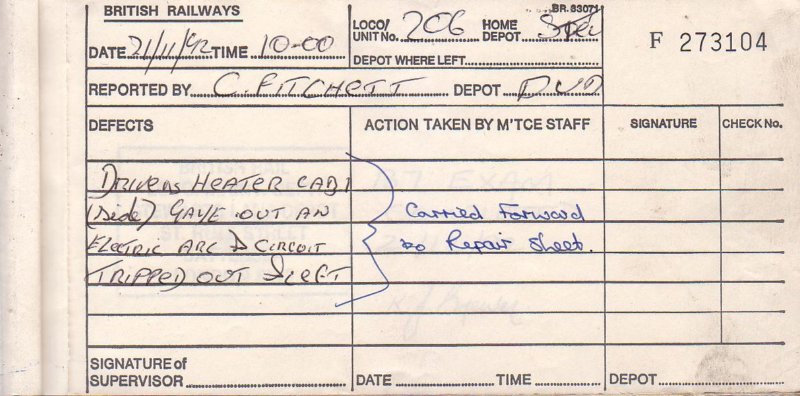 BRITISH RAILWAYS
BR. 83071
DATE 21/11/92 TIME 10-00
LOCO/ UNIT No. 206 HOME DEPOT
F 273104
DEPOT WHERE LEFT
REPORTED BY C. PITCHETT DEPOT DVD
DEFECTS ACTION TAKEN BY M'TCE STAFF SIGNATURE CHECK No.
DRIVERS HEATER CAB 1
(Side) GAVE OUT AN
ELECTRIC ARC & CIRCUIT
TRIPPED OUT & LEFT
Carried Forward
to Repair Sheet.
SIGNATURE of
SUPERVISOR DATE TIME DEPOT